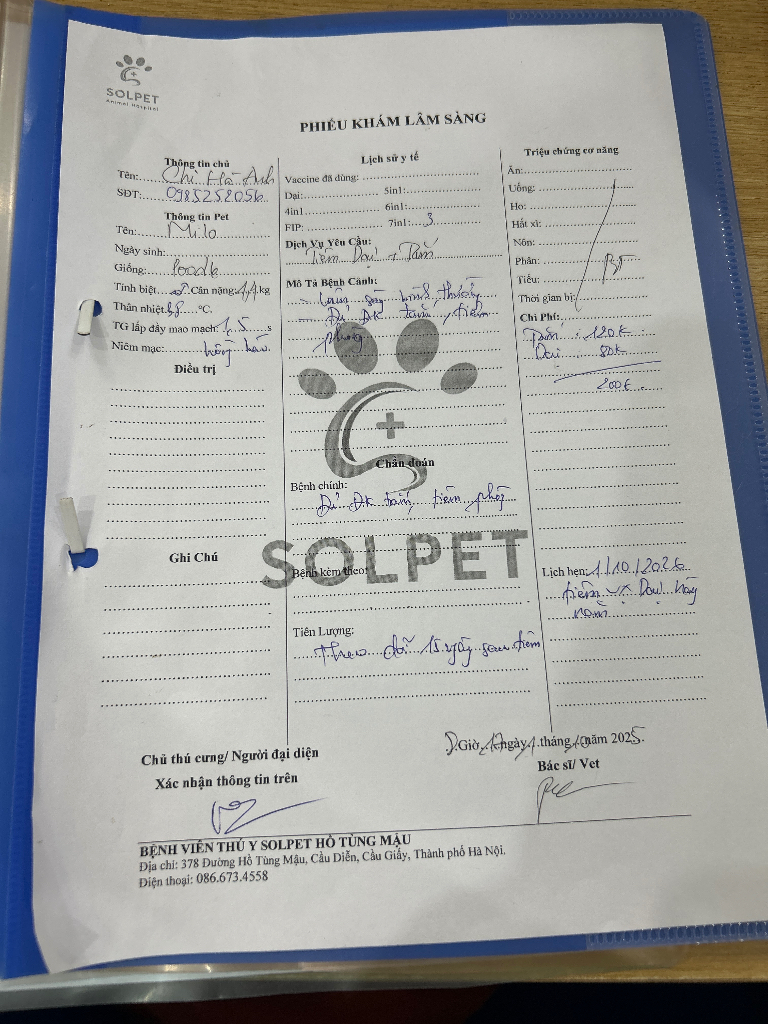 SOLPET
Animal Hospital
PHIẾU KHÁM LÂM SÀNG
Thông tin chủ
Tên: Chị Hà Anh
SĐT: 0985258056
Thông tin Pet
Tên: Milo
Ngày sinh:
Giống: Poodle
Tính biệt Cân nặng: 4,4 kg
Thân nhiệt: 38 °C.
TG lấp đầy mao mạch: 1,5 s
Niêm mạc: hồng hào
Điều trị
Ghi Chú
Lịch sử y tế
Vaccine đã dùng:
Dại: 5in1:
4in1 6in1:
FIP: 7in1: 3
Dịch Vụ Yêu Cầu:
Tiêm Dại + Tắm
Mô Tả Bệnh Cảnh:
- bình thường
- Đủ ĐK tắm, tiêm
phòng
Chẩn đoán
Bệnh chính:
Đủ ĐK tắm, tiêm phòng
SOLPET
Bệnh kèm theo:
Tiên Lượng:
Theo dõi 15 ngày sau tiêm
Triệu chứng cơ năng
Ăn:
Uống:
Ho:
Hắt xì:
Nôn:
Phân:
Tiểu: BT
Thời gian bị:
Chi Phí:
Tắm : 120k
Dại : 80k
200k
Lịch hẹn: 1/10/2026
tiêm vx Dại hàng
năm
Giờ 17 ngày 1 tháng 10 năm 2025.
Chủ thú cưng/ Người đại diện
Xác nhận thông tin trên
Bác sĩ/ Vet
BỆNH VIÊN THÚ Y SOLPET HỒ TÙNG MẬU
Địa chỉ: 378 Đường Hồ Tùng Mậu, Cầu Diễn, Cầu Giấy, Thành phố Hà Nội.
Điện thoại: 086.673.4558